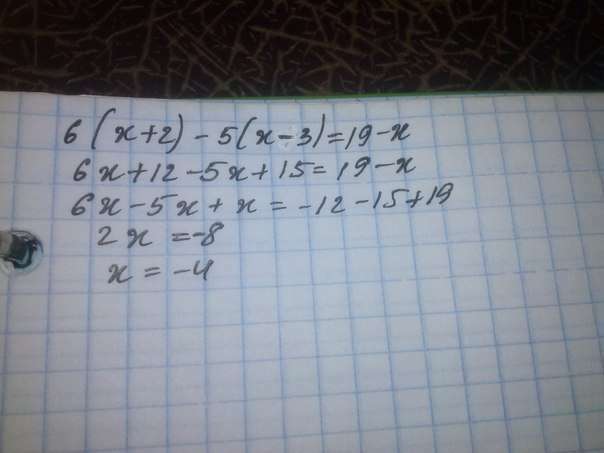 6(x+2)-5(x-3)=19-x
6x+12-5x+15=19-x
6x-5x+x=-12-15+19
2x=-8
x=-4